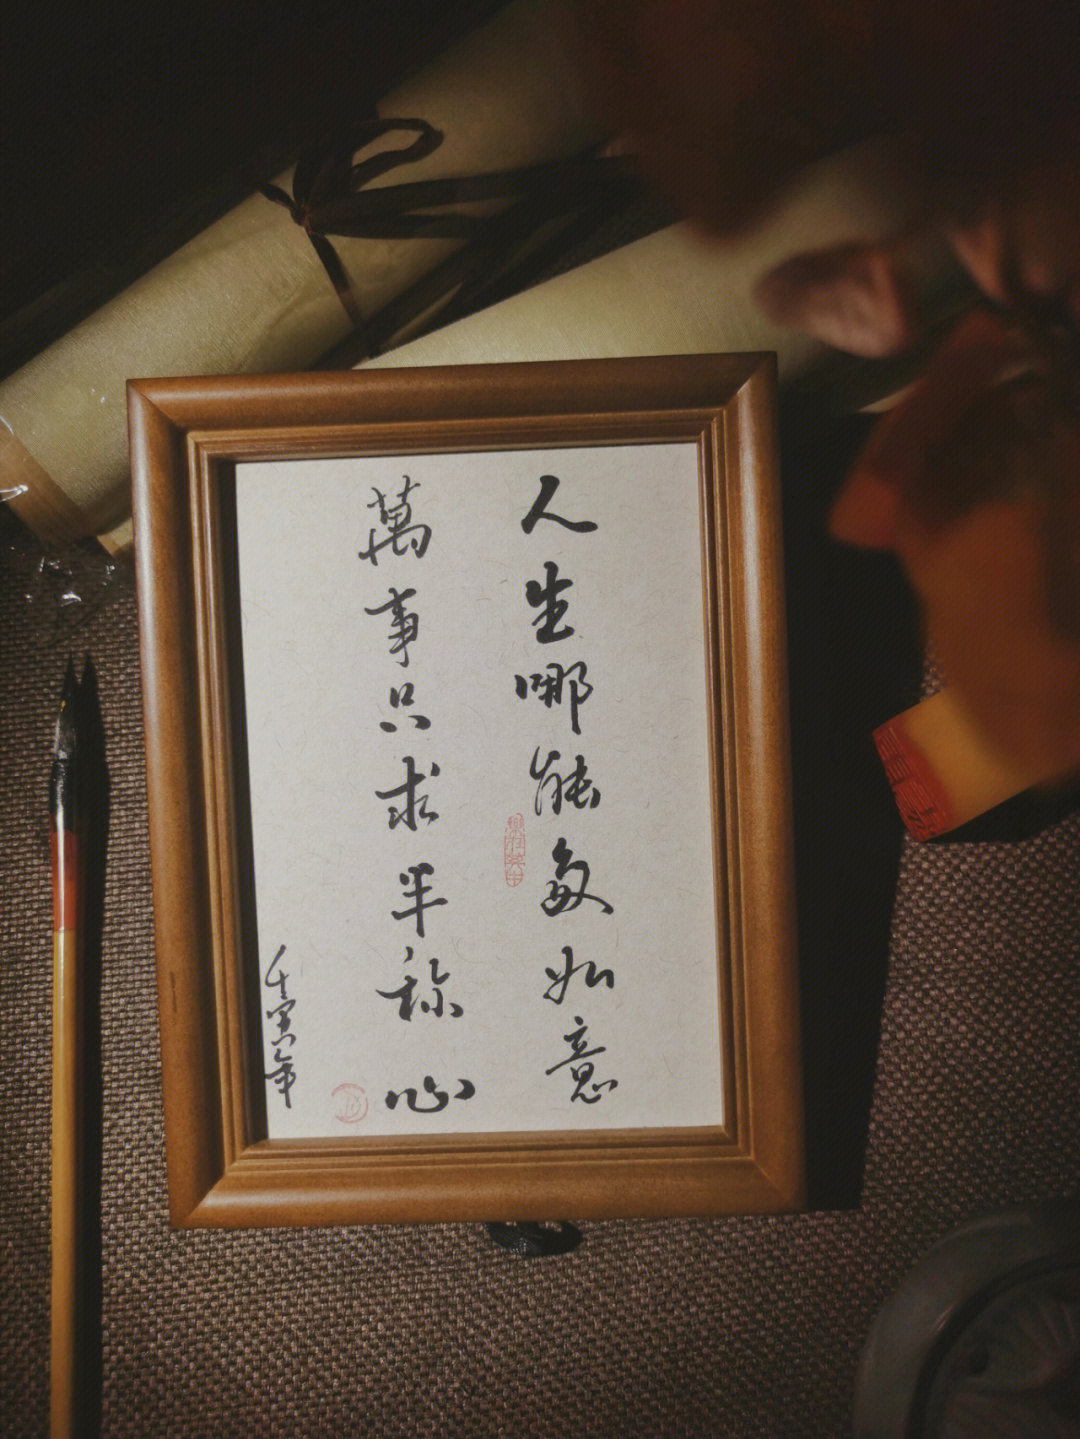 人生哪能多如意
萬事只求半称心
壬寅年